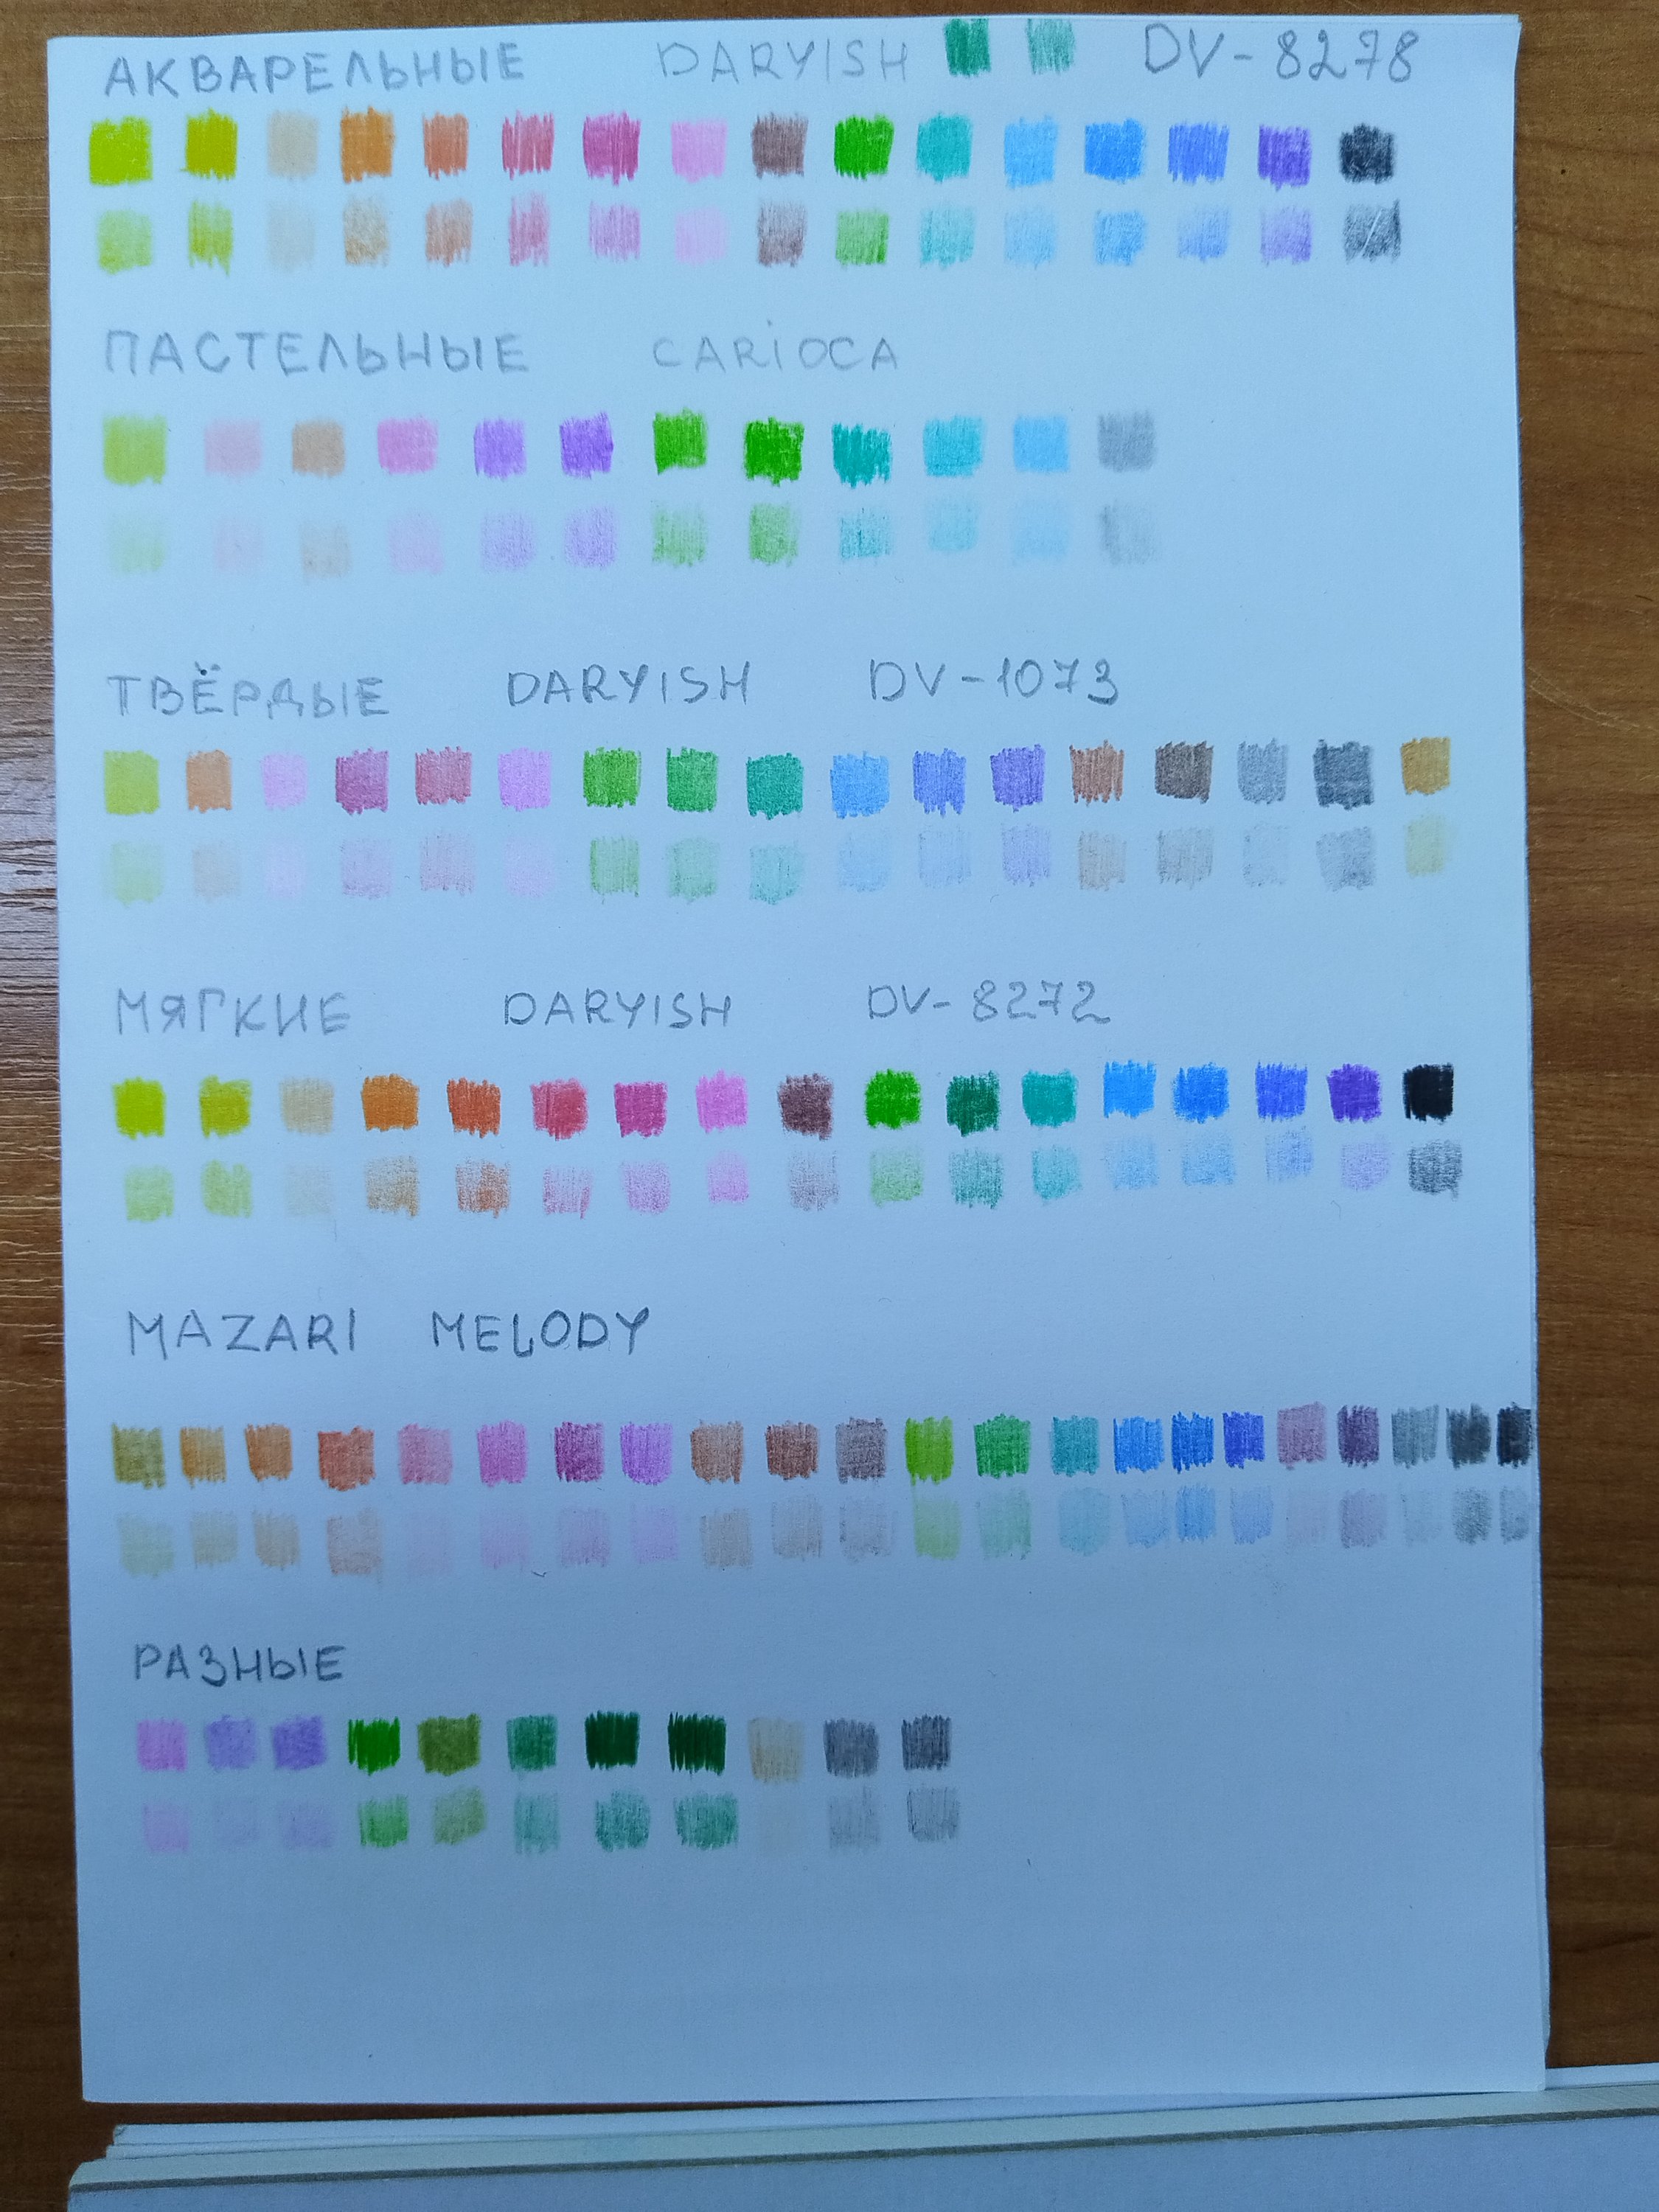 АКВАРЕЛЬНЫЕ DARYISH DV-8278
ПАСТЕЛЬНЫЕ CARiOCA
ТВЁРДЫЕ DARYISH DV-1073
МЯГКИЕ DARYISH DV-8272
MAZARI MELODY
РАЗНЫЕ